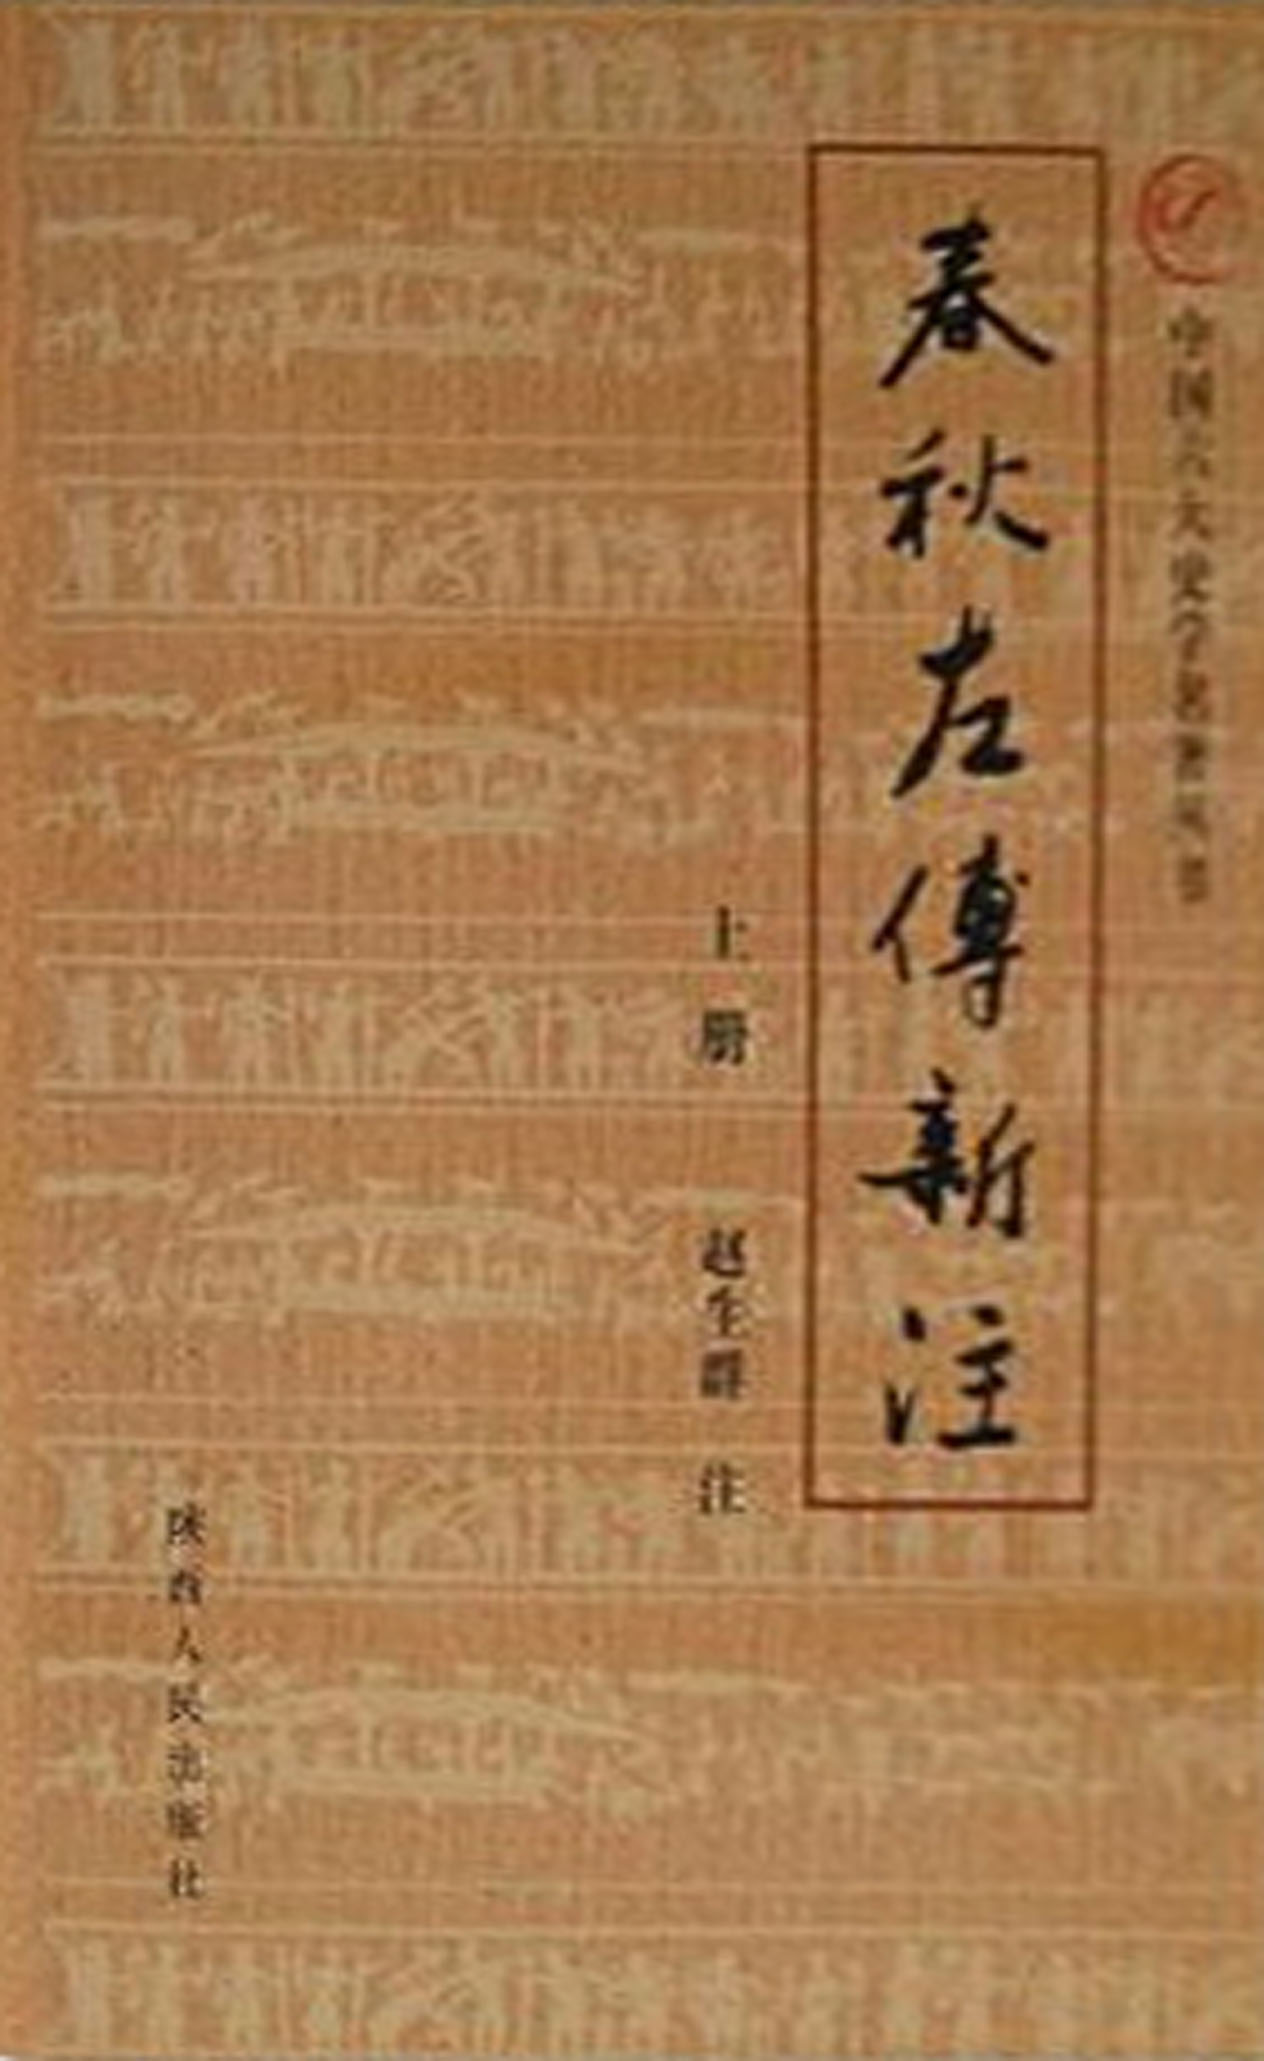 中国六大史学名著丛书
春秋左傳新注
上册
赵生群 注
陕西人民出版社